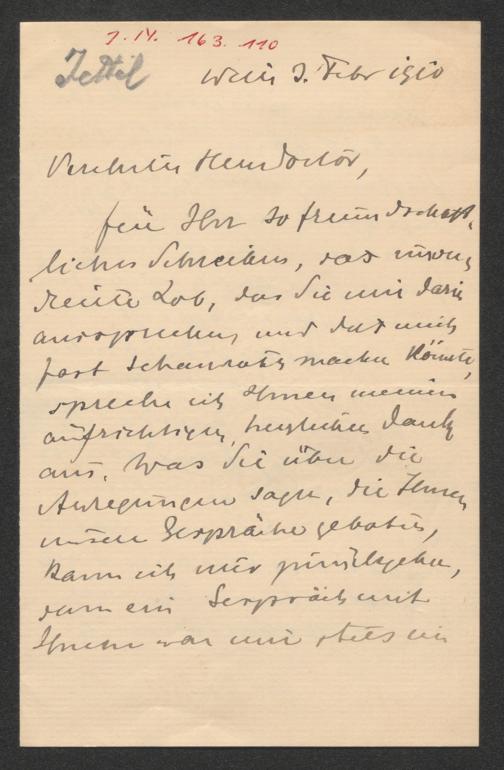 7. IV. 163. 110
Tettel
Wien 3. Febr 1910
Verehrter Herr Doctor,
für Ihr so freundschaft-
liches Schreiben, das
Lob, das Sie mir darin
aussprechen und das mich
fast schamroth machen könnte,
spreche ich Ihnen meinen
aufrichtigen, herzlichen Dank
aus. Was Sie über die
Anregungen sagen, die Ihnen
unsere Gespräche geboten,
kann ich nur zurückgeben,
denn ein Gespräch mit
Ihnen war mir stets ein